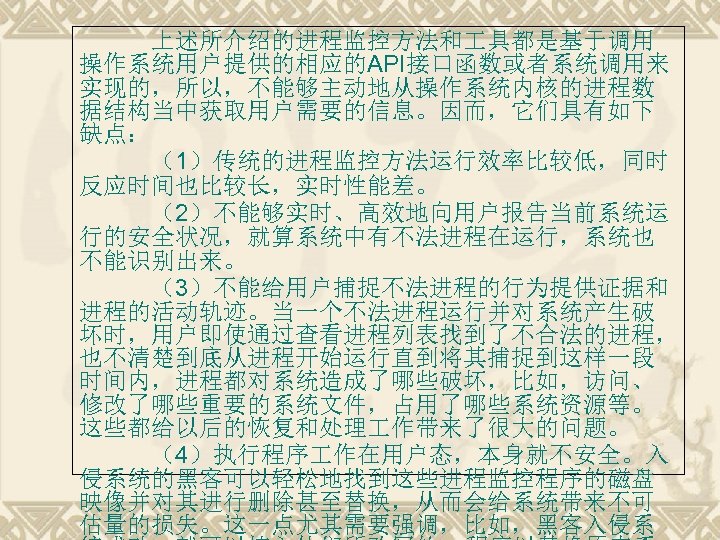 上述所介绍的进程监控方法和工具都是基于调用
操作系统用户提供的相应的API接口函数或者系统调用来
实现的，所以，不能够主动地从操作系统内核的进程数
据结构当中获取用户需要的信息。因而，它们具有如下
缺点：
（1）传统的进程监控方法运行效率比较低，同时
反应时间也比较长，实时性能差。
（2）不能够实时、高效地向用户报告当前系统运
行的安全状况，就算系统中有不法进程在运行，系统也
不能识别出来。
（3）不能给用户捕捉不法进程的行为提供证据和
进程的活动轨迹。当一个不法进程运行并对系统产生破
坏时，用户即使通过查看进程列表找到了不合法的进程，
也不清楚到底从进程开始运行直到将其捕捉到这样一段
时间内，进程都对系统造成了哪些破坏，比如，访问、
修改了哪些重要的系统文件，占用了哪些系统资源等。
这些都给以后的恢复和处理工作带来了很大的问题。
（4）执行程序工作在用户态，本身就不安全。入
侵系统的黑客可以轻松地找到这些进程监控程序的磁盘
映像并对其进行删除甚至替换，从而会给系统带来不可
估量的损失。这一点尤其需要强调，比如，黑客入侵系